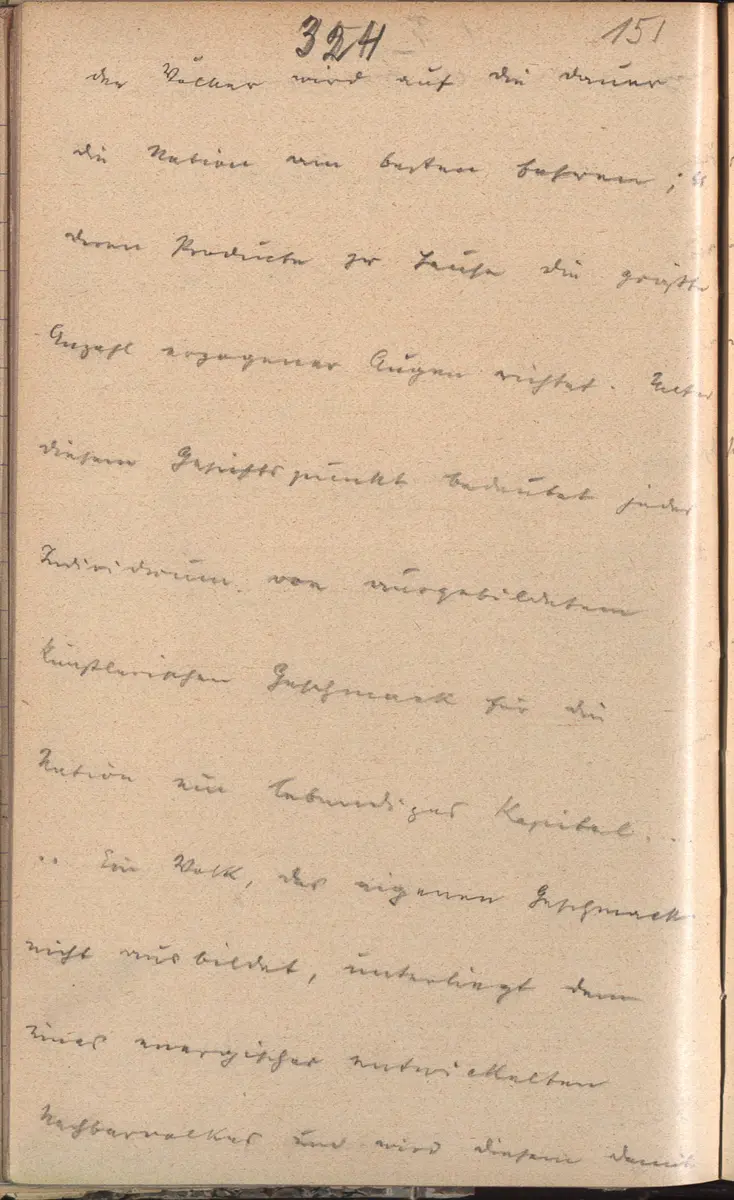 324 151
der Völker wird auf die Dauer
die Nation am besten fahren;
deren Producte zu Hause die größte
Anzahl erzogener Augen richtet. Unter
diesem Gesichtspunkt bedeutet jedes
Individuum von ausgebildetem
künstlerischen Geschmack für die
Nation ein lebendiges Kapital...
.. Ein Volk, das eigenen Geschmack
nicht ausbildet, unterliegt dem
eines energischer entwickelten
Nachbarvolkes und wird diesem damit